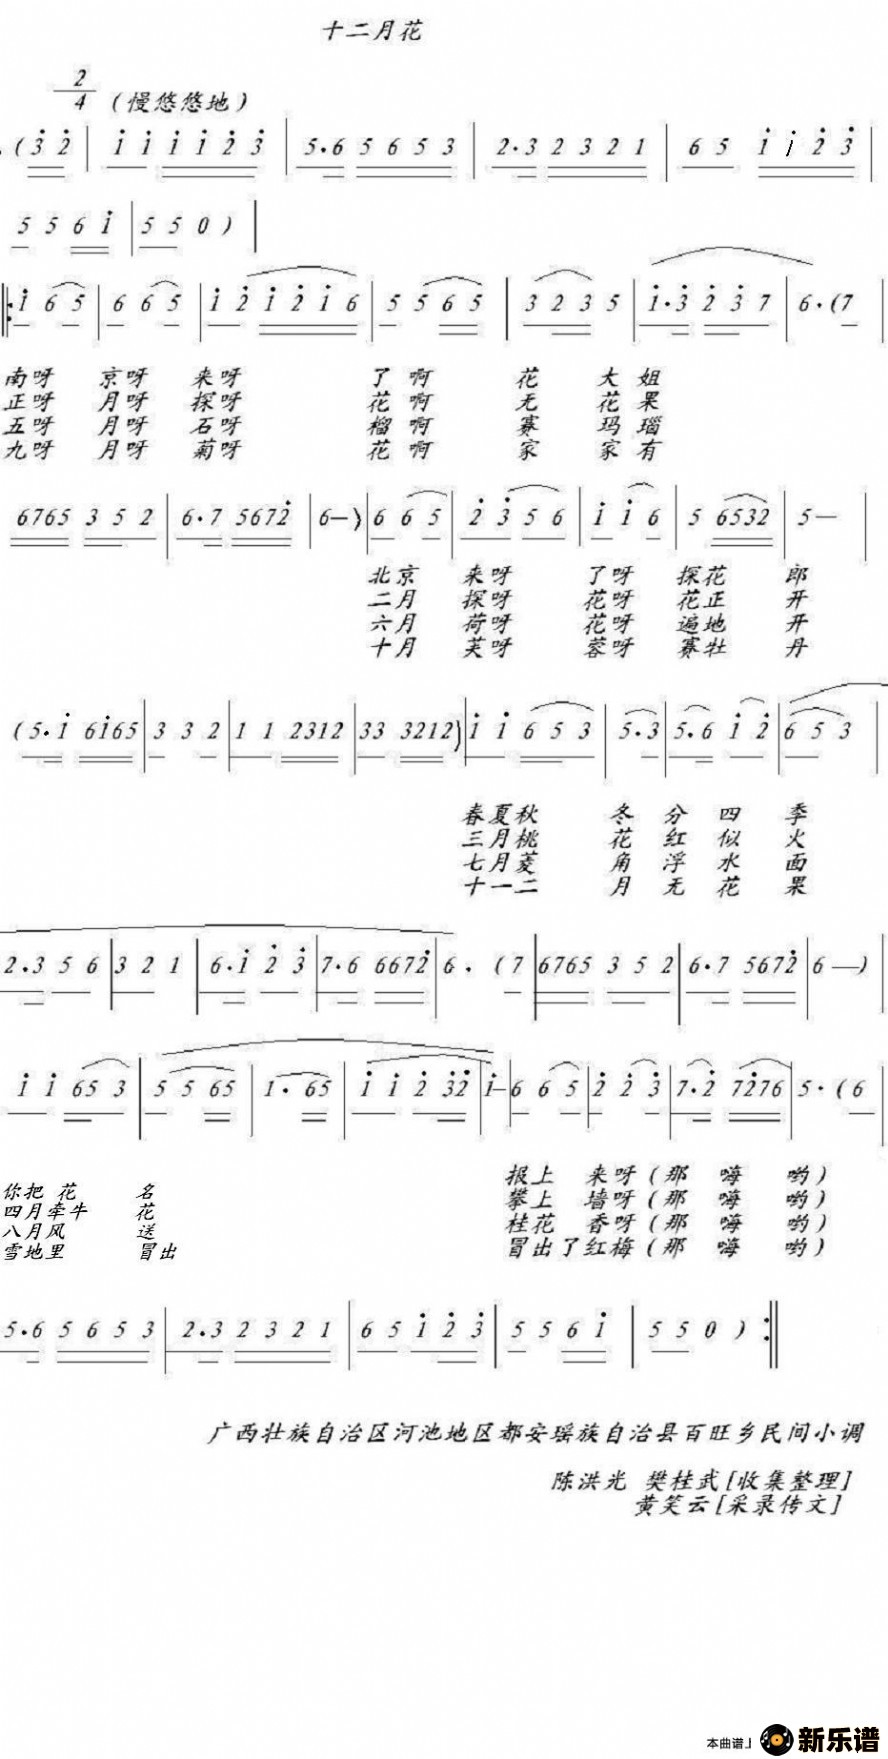 十二月花
2/4 (慢悠悠地)
(3̇ 2̇ | 1̇ 1̇ 1̇ 1̇ 2̇ 3̇ | 5·6 5 6 5 3 | 2·3 2 3 2 1 | 6 5 1̇ 1̇ 2̇ 3̇ |
5 5 6 1̇ | 5 5 0 ) |
‖: 1̇ 6 5 | 6 6 5 | 1̇ 2̇ 1̇ 2̇ 1̇ 6 | 5 5 6 5 | 3 2 3 5 | 1̇·3̇ 2̇ 3̇ 7 | 6·(7 |
南呀 京呀 来呀 了 啊 花 大 姐
正呀 月呀 探呀 花 啊 无 花 果
五呀 月呀 石呀 榴 啊 赛 玛 瑙
九呀 月呀 菊呀 花 啊 家 家 有
6765 3 5 2 | 6·7 5672̇ | 6—) | 6 6 5 | 2̇ 3̇ 5 6 | 1̇ 1̇ 6 | 5 6532 | 5— |
北京 来呀 了呀 探花 郎
二月 探呀 花呀 花正 开
六月 荷呀 花呀 遍地 开
十月 芙呀 蓉呀 赛牡 丹
(5·1̇ 61̇65 | 3 3 2 | 1 1 2312 | 33 3212) | 1̇ 1̇ 6 5 3 | 5·3 | 5·6 1̇ 2̇ | 6 5 3 |
春夏秋 冬 分 四 季
三月桃 花 红 似 火
七月菱 角 浮 水 面
十一二 月 无 花 果
2·3 5 6 | 3 2 1 | 6·1̇ 2̇ 3̇ | 7·6 6672̇ | 6·(7 | 6765 3 5 2 | 6·7 5672̇ | 6—) |
1̇ 1̇ 65 3 | 5 5 65 | 1· 65 | 1̇ 1̇ 2̇ 3̇2̇ | 1̇— | 6 6 5 | 2̇ 2̇ 3̇ | 7·2̇ 72̇76 | 5·(6 |
你把 花 名 报上 来呀(那 嗨 哟)
四月牵牛 花 攀上 墙呀(那 嗨 哟)
八月风 送 桂花 香呀(那 嗨 哟)
雪地里 冒出 冒出了红梅(那 嗨 哟)
5·6 5 6 5 3 | 2·3 2 3 2 1 | 6 5 1̇ 2̇ 3̇ | 5 5 6 1̇ | 5 5 0 ) :‖
广西壮族自治区河池地区都安瑶族自治县百旺乡民间小调
陈洪光 樊桂武[收集整理]
黄笑云[采录传文]
本曲谱上 新乐谱